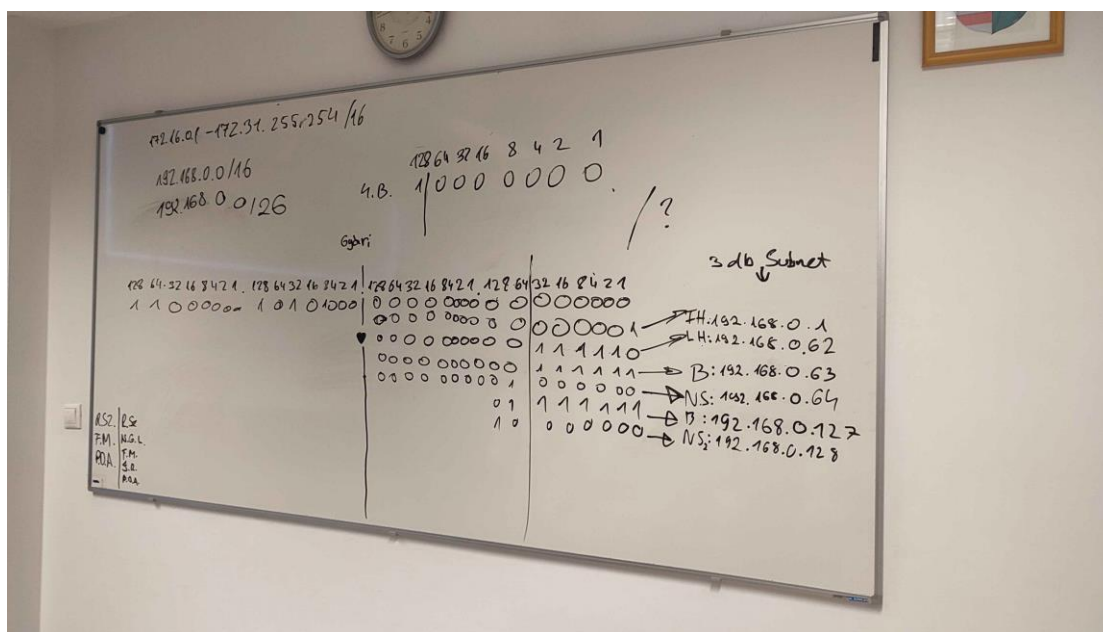 172.16.0.1 - 172.31.255.254 /16
192.168.0.0/16
192.168.0.0/26
128 64 32 16 8 4 2 1
4.B. 1|000 0000.
/?
Gyári
3 db Subnet
128 64 32 16 8 4 2 1. 128 64 32 16 8 4 2 1. 128 64 32 16 8 4 2 1. 128 64 32 16 8 4 2 1
1 1 0 0 0 0 0 0 1 0 1 0 1 0 0 0 0 0 0 0 0 0 0 0 0 0 0 0 0 0 0 0
0 0 0 0 0 0 0 0 0 0 0 0 0 0 0 1 FH: 192.168.0.1
0 0 0 0 0 0 0 0 0 0 1 1 1 1 1 0 LH: 192.168.0.62
0 0 0 0 0 0 0 0 0 0 1 1 1 1 1 1 B: 192.168.0.63
0 0 0 0 0 0 0 0 0 1 0 0 0 0 0 0 NS: 192.168.0.64
0 1 1 1 1 1 1 1 B: 192.168.0.127
1 0 0 0 0 0 0 0 NS2: 192.168.0.128
RSZ. RSz
F.M. N.G.L.
P.O.A. F.M.
P.O.A.
8 4
7 6 5